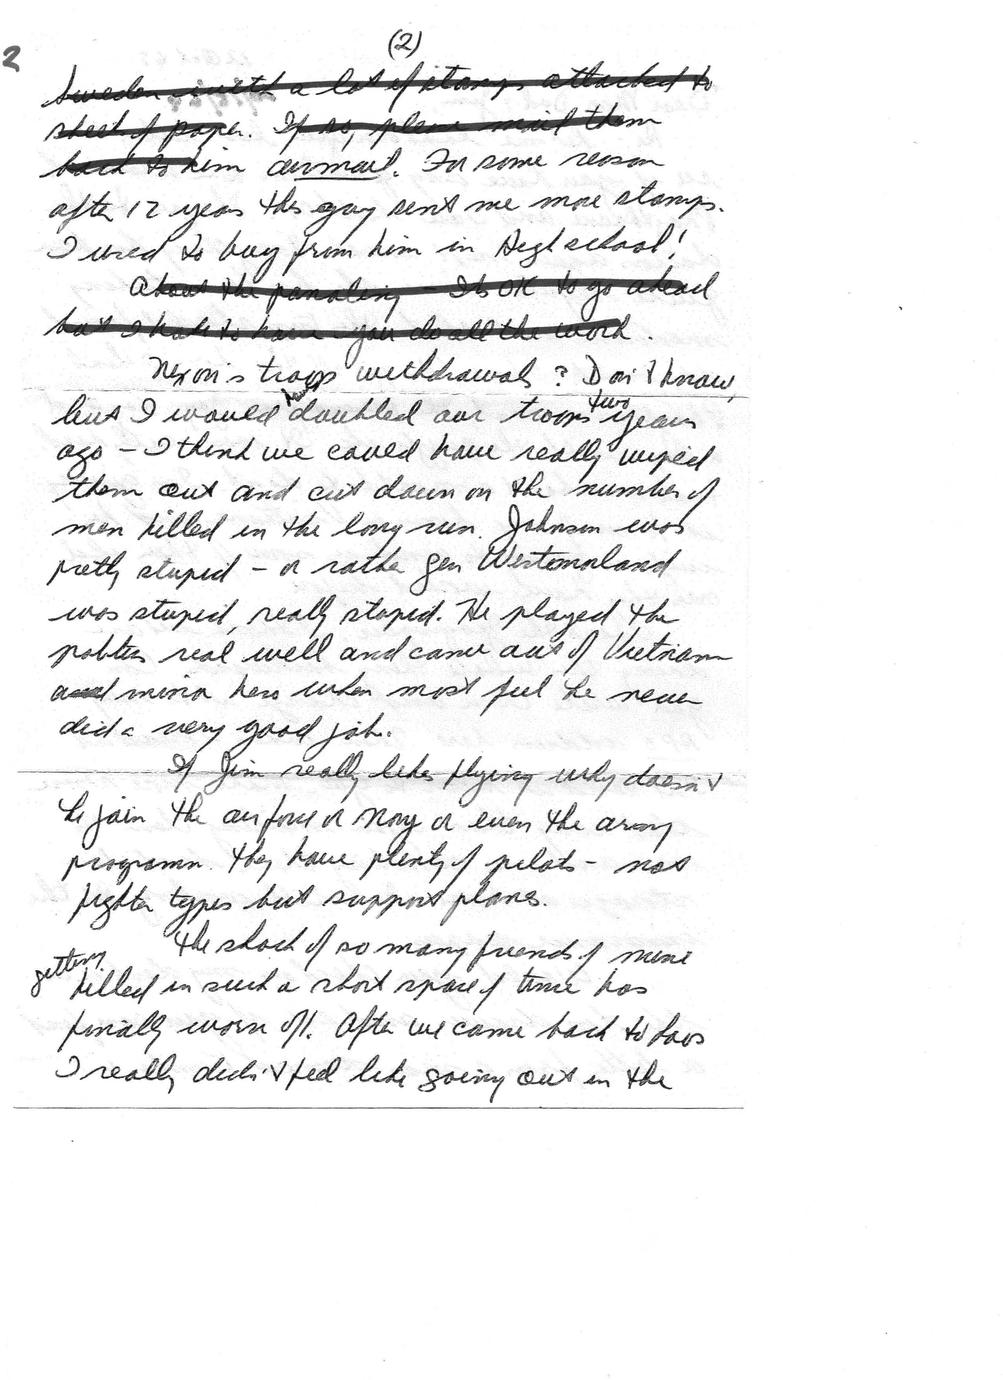 (2)
2
Sweden with a lot of stamps attached to
sheet of paper. If so, please mail them
back to him airmail. For some reason
after 12 years this guy sent me more stamps.
I used to buy from him in High school!
About the paneling - Its OK to go ahead
but I hate to have you do all the work.
Nixon's troops withdrawals? Don't know,
but I would have doubled our troops two years
ago - I think we could have really wiped
them out and cut down on the number of
men killed in the long run. Johnson was
pretty stupid - or rather Gen Westmorland
was stupid, really stupid. He played the
politics real well and came out of Vietnam
and minor hero when most feel he never
did a very good job.
If Jim really likes flying why doesn't
he join the airforce or Navy or even the army
programn. They have plenty of pilots - not
fighter types but support planes.
The shock of so many friends of mine
getting
killed in such a short space of time has
finally worn off. After we came back to Laos
I really didn't feel like going out in the